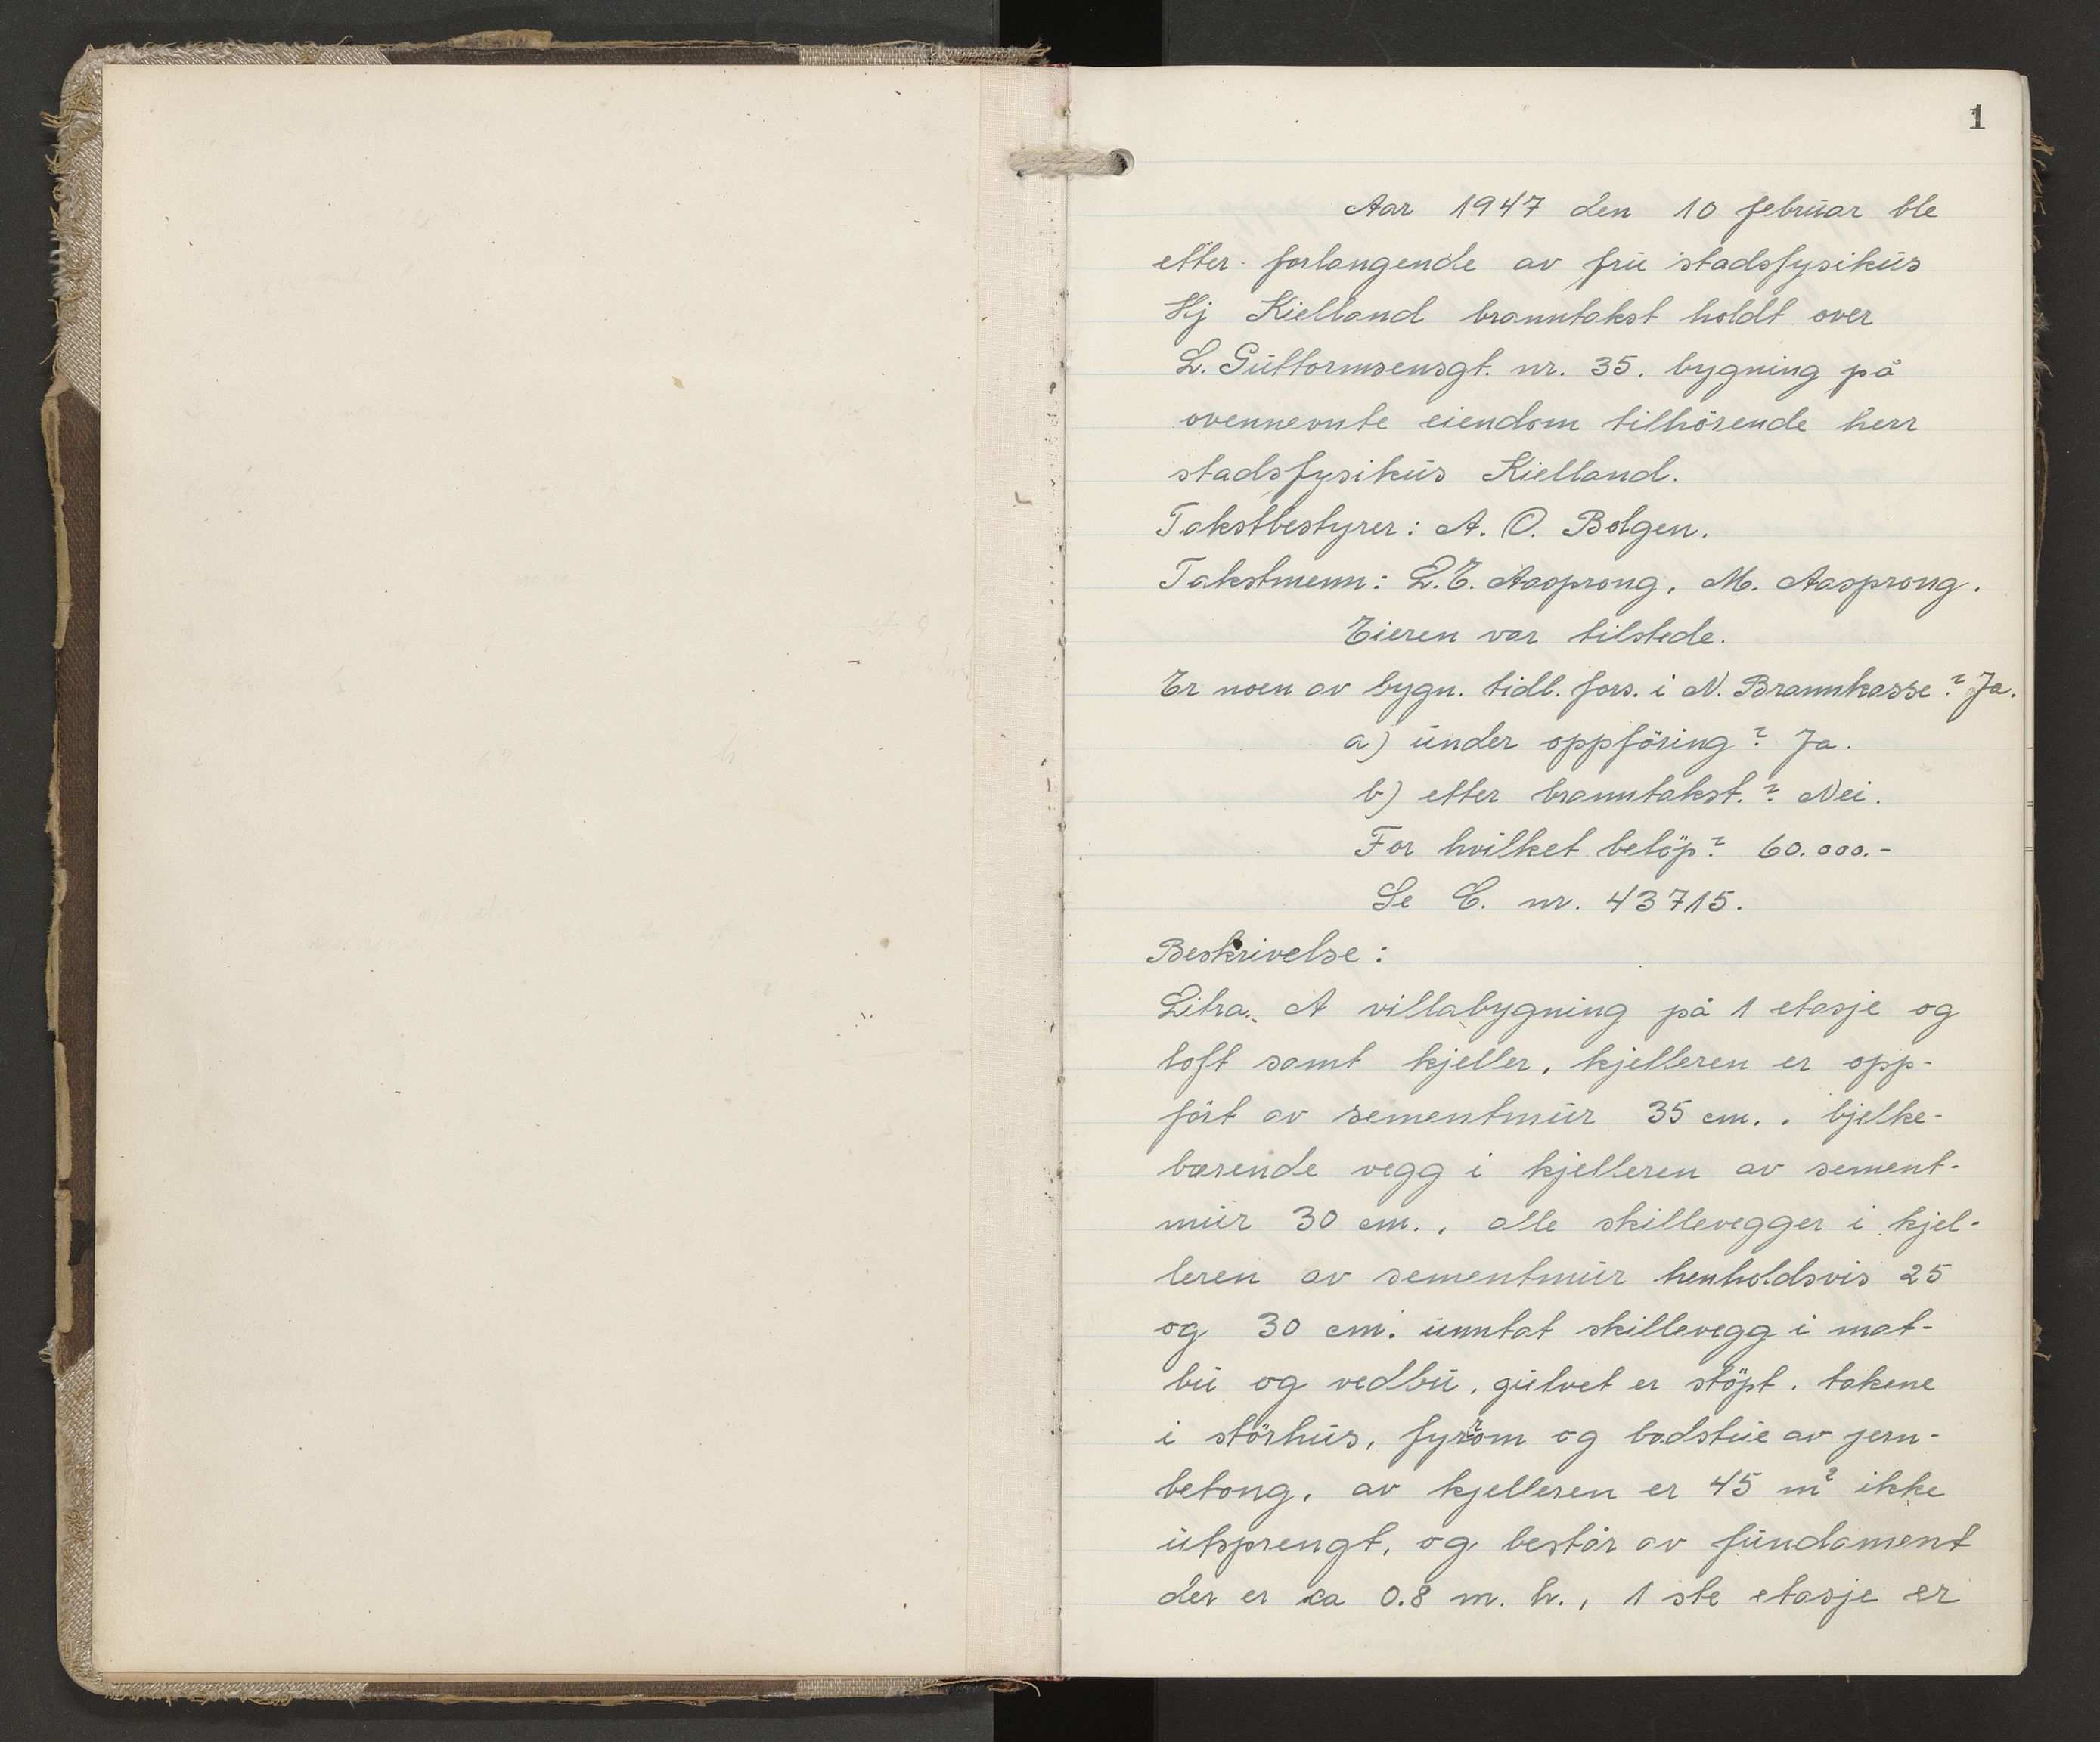 1
Aar 1947 den 10 februar ble
etter forlangende av fru stadsfysikus
Hj Kielland branntakst holdt over
L. Guttormsensgt. nr. 35. bygning på
ovennevnte eiendom tilhörende herr
stadsfysikus Kielland.
Takstbestyrer: A. O. Bolgen.
Takstmenn: L. E. Aasprong, M. Aasprong.
Eieren var tilstede.
Er noen av bygn. tidl. fors. i N. Brannkasse? Ja.
a) under oppföring? Ja.
b) etter branntakst.? Nei.
For hvilket belöp? 60.000.-
Se C. nr. 43715.
Beskrivelse:
Litra. A villabygning på 1 etasje og
loft samt kjeller, kjelleren er opp-
fört av sementmur 35 cm., bjelke-
bærende vegg i kjelleren av sement-
mur 30 cm., alle skillevegger i kjel-
leren av sementmur henholdsvis 25
og 30 cm. unntat skillevegg i mat-
bu og vedbu, gulvet er stöpt. takene
i störhus, fyrrom og badstue av jern-
betong, av kjelleren er 45 m² ikke
utsprengt, og består av fundament
der er ca 0.8 m. h., 1 ste etasje er